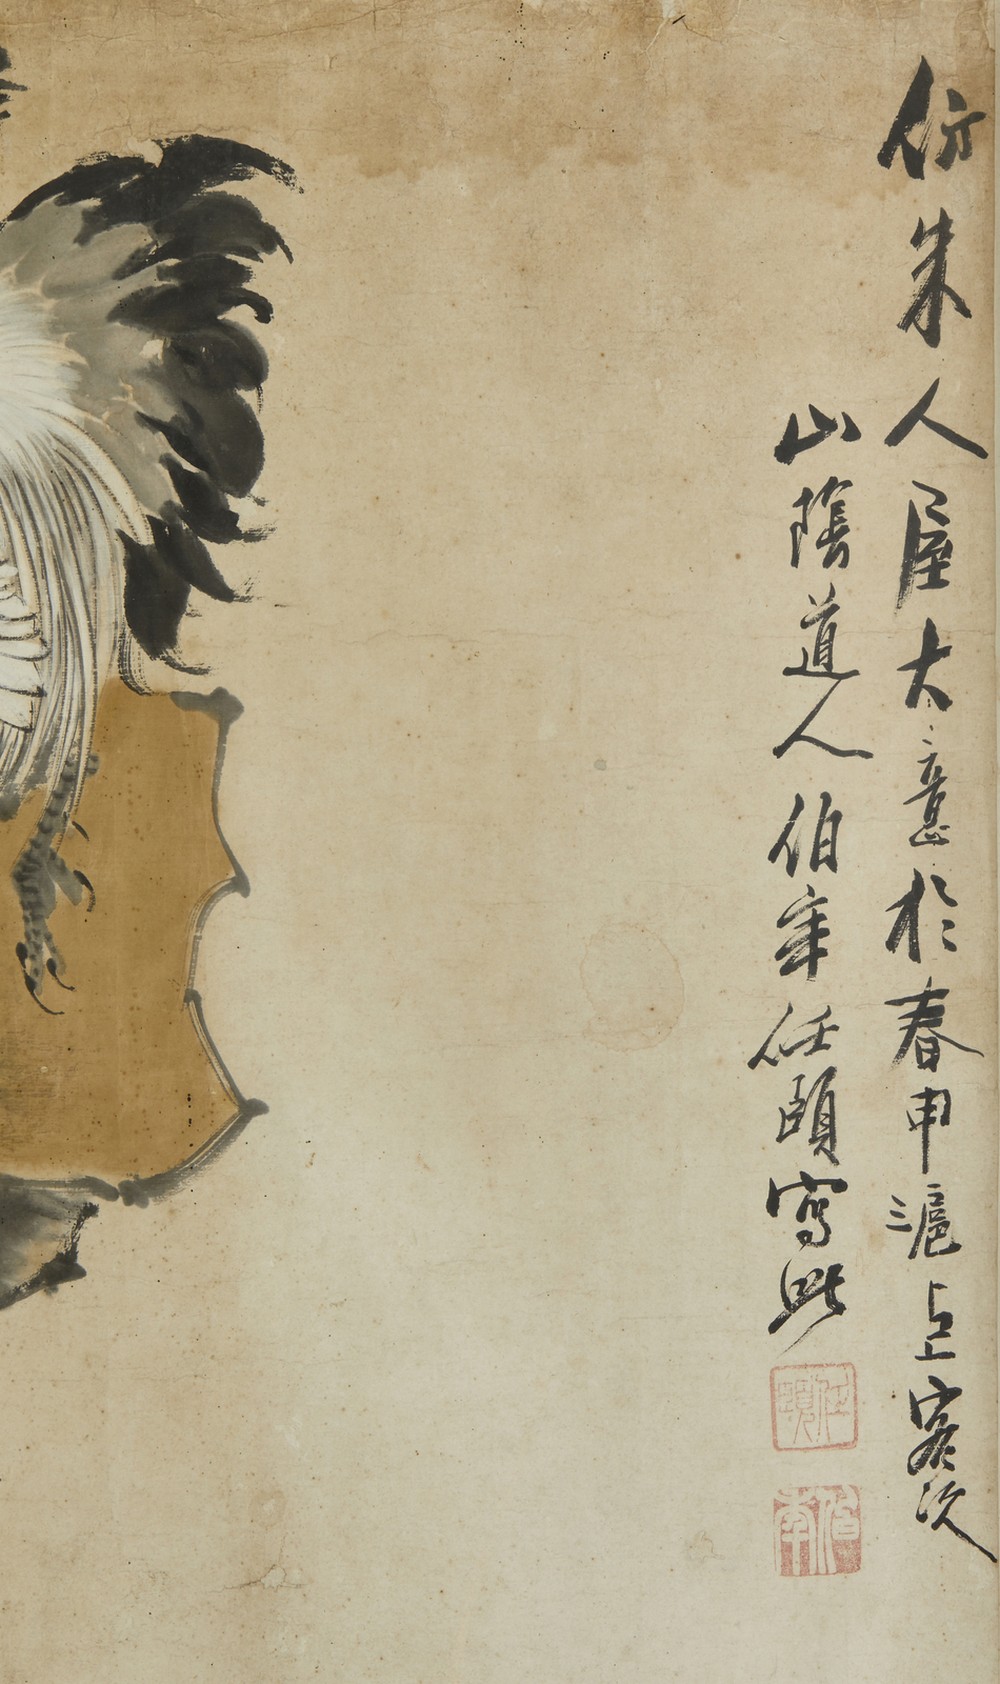 仿朱人屋大意於春申滬上客次
山陰道人伯年任頤寫此
任頤
伯年